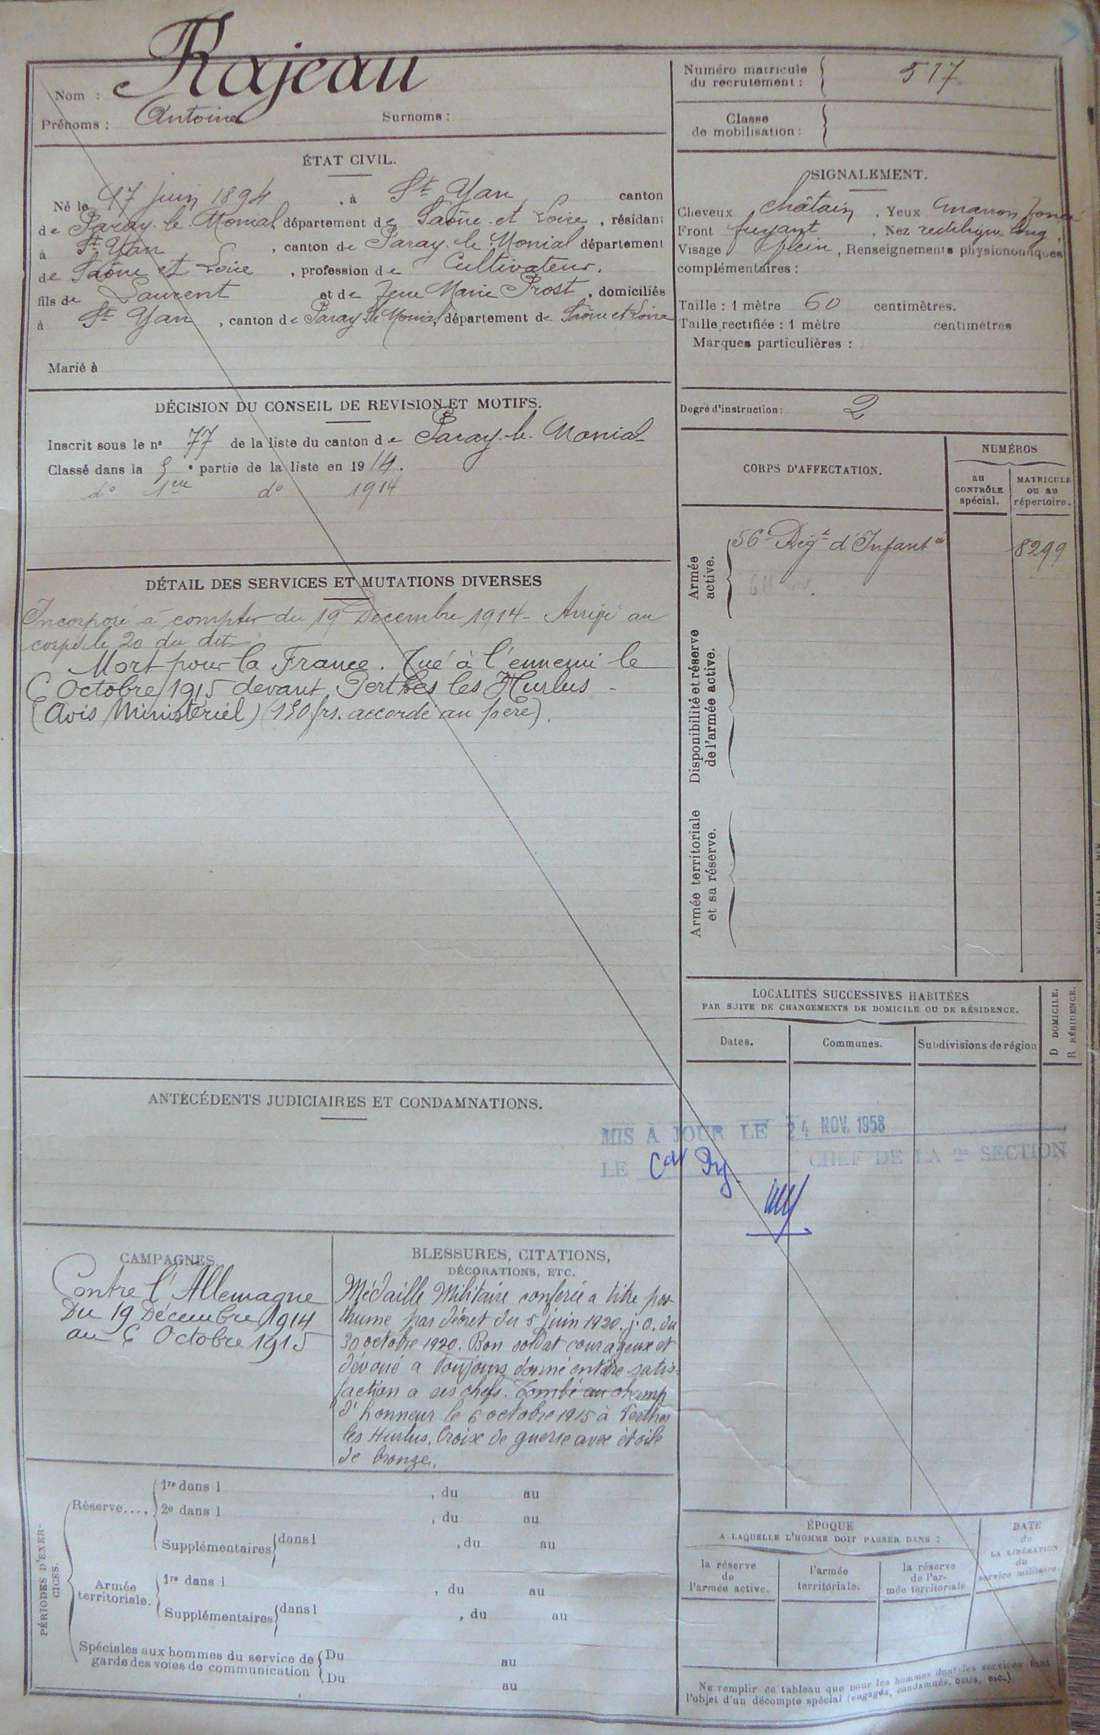 Nom : Rajeau
Prénoms : Antoine Surnoms :
Numéro matricule
du recrutement : 517
Classe
de mobilisation :
ÉTAT CIVIL.
Né le 17 juin 1894, à St Yan, canton
de Paray-le-Monial, département de Saône-et-Loire, résidant
à St Yan, canton de Paray-le-Monial département
de Saône et Loire, profession de Cultivateur.
fils de Laurent et de Marie Prost, domiciliés
à St Yan, canton de Paray le Monial, département de Saône et Loire
Marié à
SIGNALEMENT.
Cheveux châtain. Yeux marron foncé
Front fuyant, Nez rectiligne long
Visage plein, Renseignements physionomiques
complémentaires :
Taille : 1 mètre 60 centimètres.
Taille rectifiée : 1 mètre centimètres
Marques particulières :
Degré d'instruction : 2
DÉCISION DU CONSEIL DE REVISION ET MOTIFS.
Inscrit sous le n° 77 de la liste du canton de Paray-le-Monial
Classé dans la 5e partie de la liste en 1914.
do 1ere do 1914
CORPS D'AFFECTATION.
NUMÉROS
au
CONTRÔLE
spécial.
MATRICULE
ou au
répertoire.
Armée
active.
56e Régt d'Infantie
8299
Disponibilité et réserve
de l'armée active.
Armée territoriale
et sa réserve.
DÉTAIL DES SERVICES ET MUTATIONS DIVERSES
Incorporé à compter du 19 Décembre 1914 - Arrivé au
corps le 20 du dit
Mort pour la France. Tué à l'ennemi le
6 Octobre 1915 devant Perthes les Hurlus -
(Avis Ministériel) 150 frs. accordé au père).
LOCALITÉS SUCCESSIVES HABITÉES
PAR SUITE DE CHANGEMENTS DE DOMICILE OU DE RÉSIDENCE.
Dates.
Communes.
Subdivisions de région
D DOMICILE.
R RÉSIDENCE.
ANTÉCÉDENTS JUDICIAIRES ET CONDAMNATIONS.
MIS À JOUR LE 24 NOV. 1958
LE CHEF DE LA 2e SECTION
CAMPAGNES
Contre l'Allemagne
Du 19 Décembre 1914
au 6 Octobre 1915
BLESSURES, CITATIONS,
DÉCORATIONS, ETC.
Médaille Militaire conférée a titre pos-
thume par décret du 5 juin 1920. j.o. du
30 octobre 1920. Bon soldat courageux et
dévoué a toujours donné entière satis-
faction a ses chefs. Tombé au champ
d'honneur le 6 octobre 1915 à Perthes
les Hurlus. Croix de guerre avec étoile
de bronze.
PÉRIODES D'EXER-
CICES.
Réserve....
1re dans l , du au
2e dans l , du au
Supplémentaires dans l , du au
Armée
territoriale.
1re dans l , du au
Supplémentaires dans l , du au
Spéciales aux hommes du service de
garde des voies de communication
Du au
Du au
ÉPOQUE
A LAQUELLE L'HOMME DOIT PASSER DANS :
la réserve
de
l'armée active.
l'armée
territoriale.
la réserve
de l'ar-
mée territoriale.
DATE
de
LA LIBÉRATION
du
service militaire.
Ne remplir ce tableau que pour les hommes dont les services font
l'objet d'un décompte spécial (engagés, condamnés, omis, etc.)